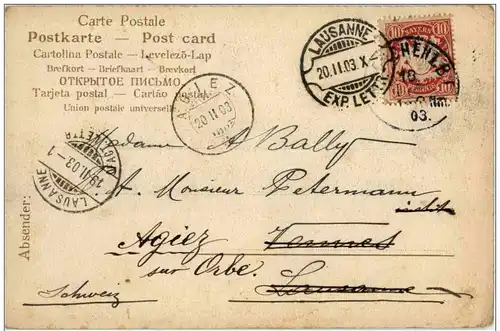 Carte Postale
Postkarte — Post card
Cartolina Postale — Levelező-Lap
Brefkort — Briefkaart — Brevkort
ОТКРЫТОЕ ПИСЬМО
Tarjeta postal — Cartão postal
Union postale universelle
LAUSANNE
20.II.03.X
EXP. LETTR.
BAYERN
10 10
03.
AGIEZ
20 II 03
LAUSANNE
19.II.03-1
Absender:
Madame A Bally
A. Monsieur Petermann
instit
Agiez Vennes
sur Orbe. Lausanne
Schweiz